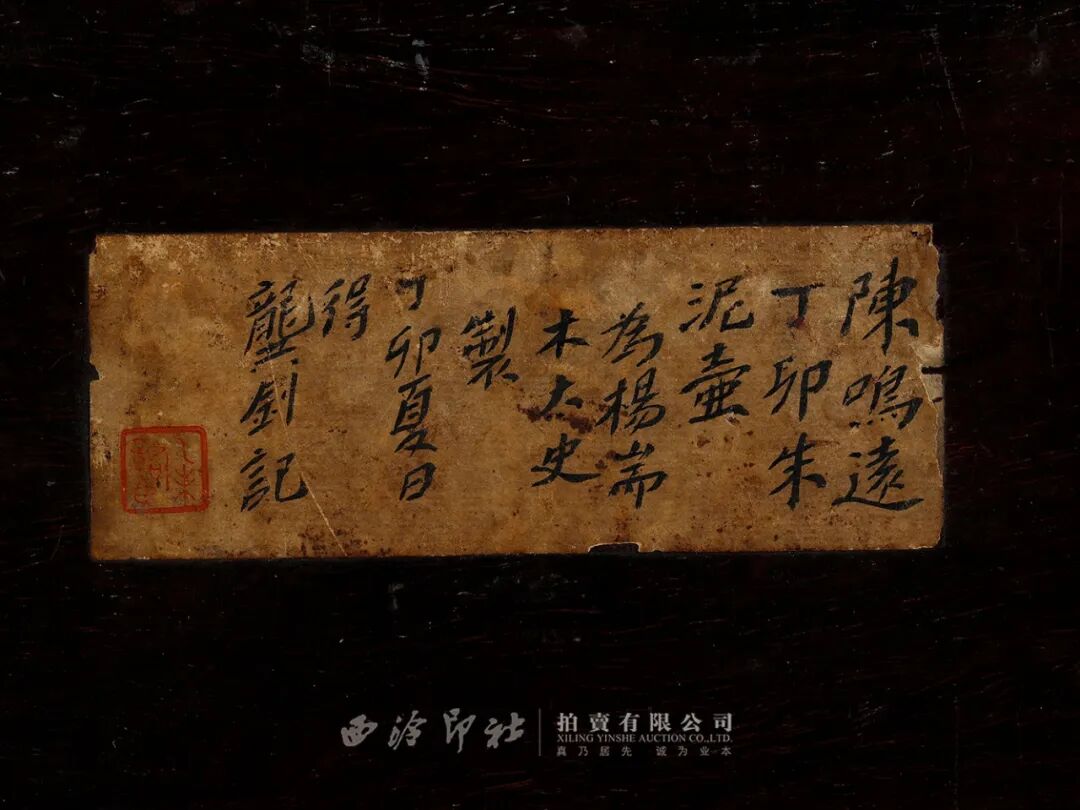 陳鳴遠
丁卯朱
泥壷
為楊耑
木太史
製
丁卯夏日
得
龔釗記
西泠印社
拍賣有限公司
XILING YINSHE AUCTION CO.,LTD.
真乃居先 诚为业本